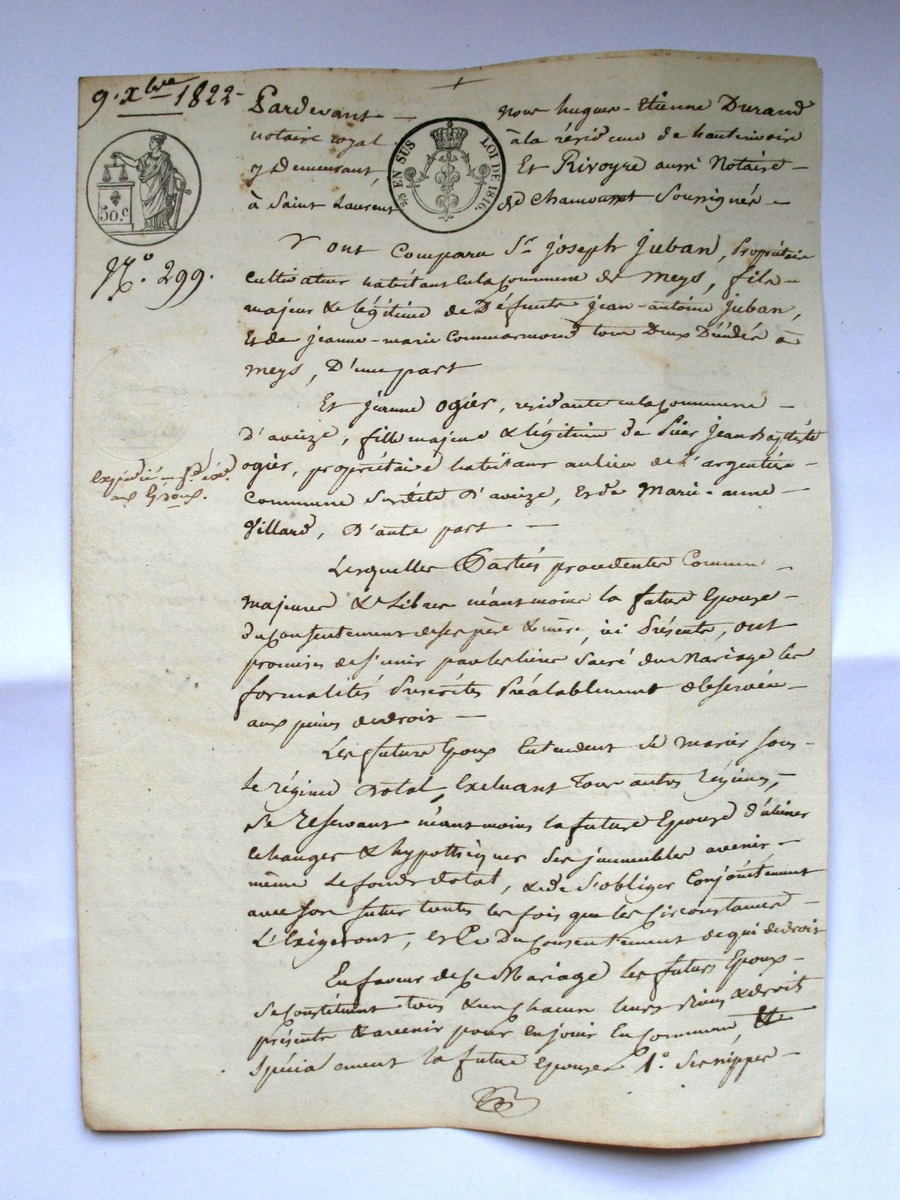 9. Xbre 1822-
Pardevant - nous hugues-Etienne Durand
notaire royal à la résidence de hauterivoire
y Demeurant, Et Rivoyre aussi Notaire -
à Saint Laurent de Chamousset Soussignés -
25 EN SUS LOI DE 1816.
50 c
N.º 299.
Y ont Comparu Sr. joseph juban, Propriétaire
cultivateur habitant en la Commune de meys, fils -
majeur & légitime de Défunts jean-antoine juban,
Et de jeanne-marie Commarmond tous Deux Décédés à
meys, D'une part
Et jeanne ogier, residante en la Commune -
D'aveize, fille majeure & légitime de Sieur Jean Baptiste
ogier, propriétaire habitant au lieu de l'argentière
Commune Susdite D'aveize, Et de Marie-anne -
Villard, D'autre part -
expédié
aux Epoux.
Lesquelles Parties procedentes Comme -
majeures & Libres néantmoins la future Epouse -
du Consentement de ses père & mère, ici Présents, ont
promises de s'unir par les liens Sacré du Mariage les
formalités Prescrites Préalablement observées -
aux peines de droit -
Les future Epoux Entendent Se marier Sous -
le régime Dotal, Excluant Tous autres Régimes, -
Se Reservant néantmoins la future Epouse D'aliéner
échanger & hypothéquer Ses immeubles avenir -
même le fonds dotal, & de S'obliger Conjointement
avec Son futur toutes les fois que les Circonstances -
L'Exigeront, et Ce Du Consentement de qui de droit
En faveur de Ce Mariage les futurs Epoux -
Se Constituent tous & un Chacun leurs Biens & droits
présents & avenir pour en jouir En Commun, Et
Spécialement la future epouse 1º. Ses nippes -